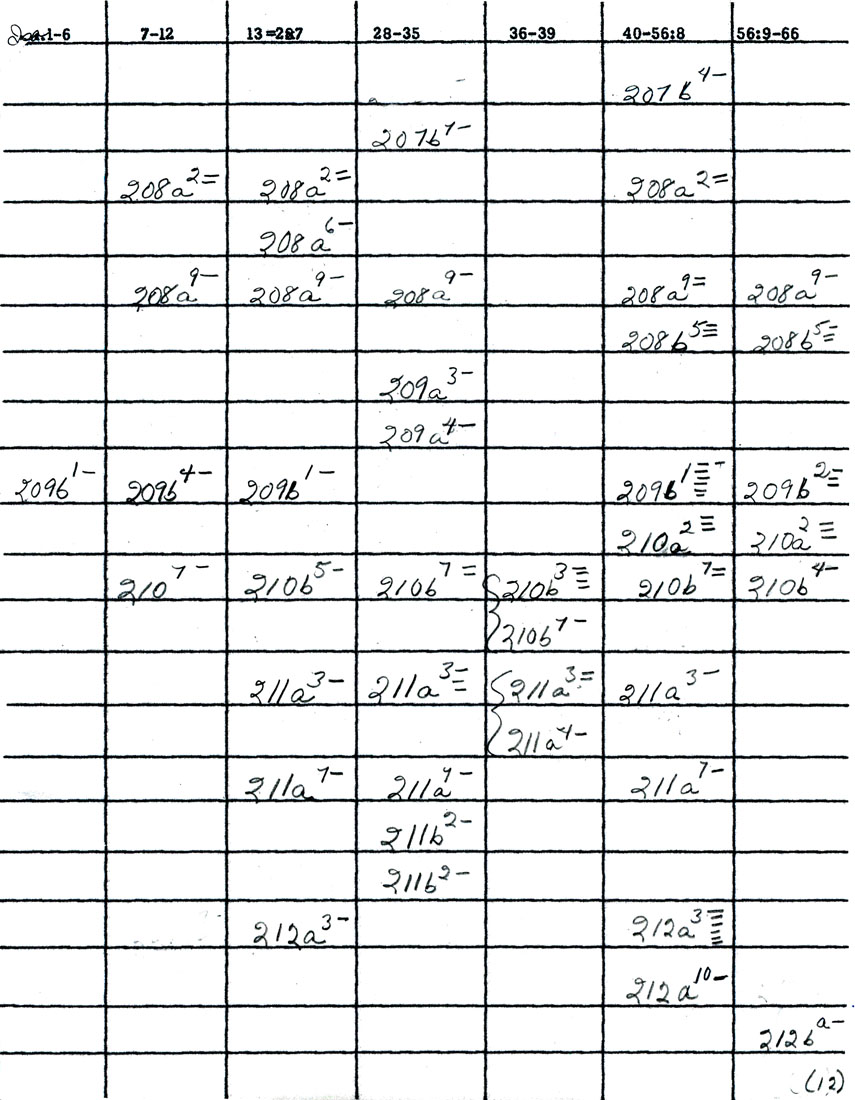 Isa. 1-6 7-12 13=27 28-35 36-39 40-56:8 56:9-66
207b⁴–
207b⁷–
208a²= 208a²= 208a²=
208a⁶–
208a⁹– 208a⁹– 208a⁹– 208a⁹= 208a⁹–
208b⁵≡ 208b⁵≡
209a³–
209a⁴–
209b¹– 209b⁴– 209b¹– 209b¹≡ 209b²=
210a²≡ 210a²≡
210⁷– 210b⁵– 210b⁷= 210b³≡ 210b⁷= 210b⁴–
210b⁷–
211a³– 211a³≡ 211a³= 211a³–
211a⁴–
211a⁷– 211a⁷– 211a⁷–
211b²–
211b²–
212a³– 212a³≡
212a¹⁰–
212bᵃ–
(12)